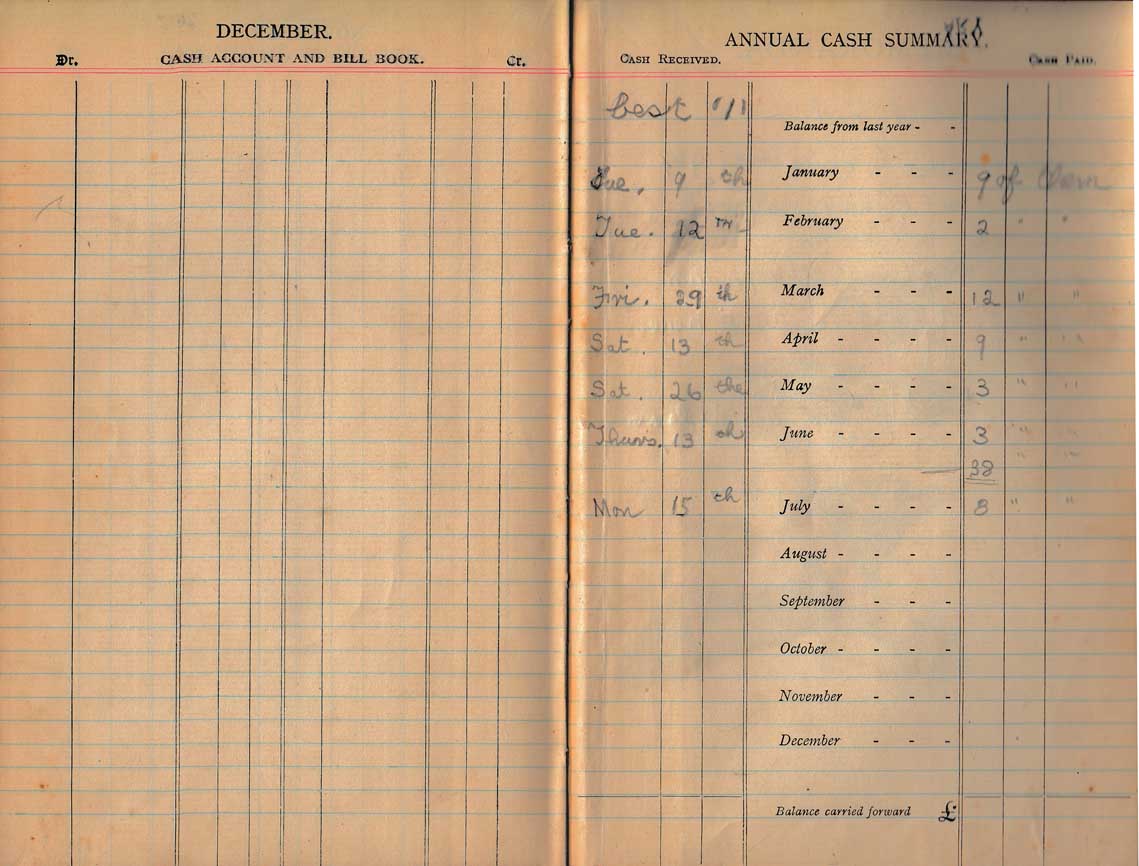 DECEMBER.
Dr. CASH ACCOUNT AND BILL BOOK. Cr.
ANNUAL CASH SUMMARY.
CASH RECEIVED. CASH PAID.
best
Balance from last year - -
Tue. 9 th January - - - 9 of them
Tue. 12 TH February - - - 2 " "
Fri. 29 th March - - - 12 " "
Sat. 13 th April - - - - 9 " "
Sat. 26 the May - - - - 3 " "
Thurs. 13 th June - - - - 3 " "
38 " "
Mon 15 th July - - - - 8 " "
August - - - -
September - - -
October - - - -
November - - -
December - - -
Balance carried forward £